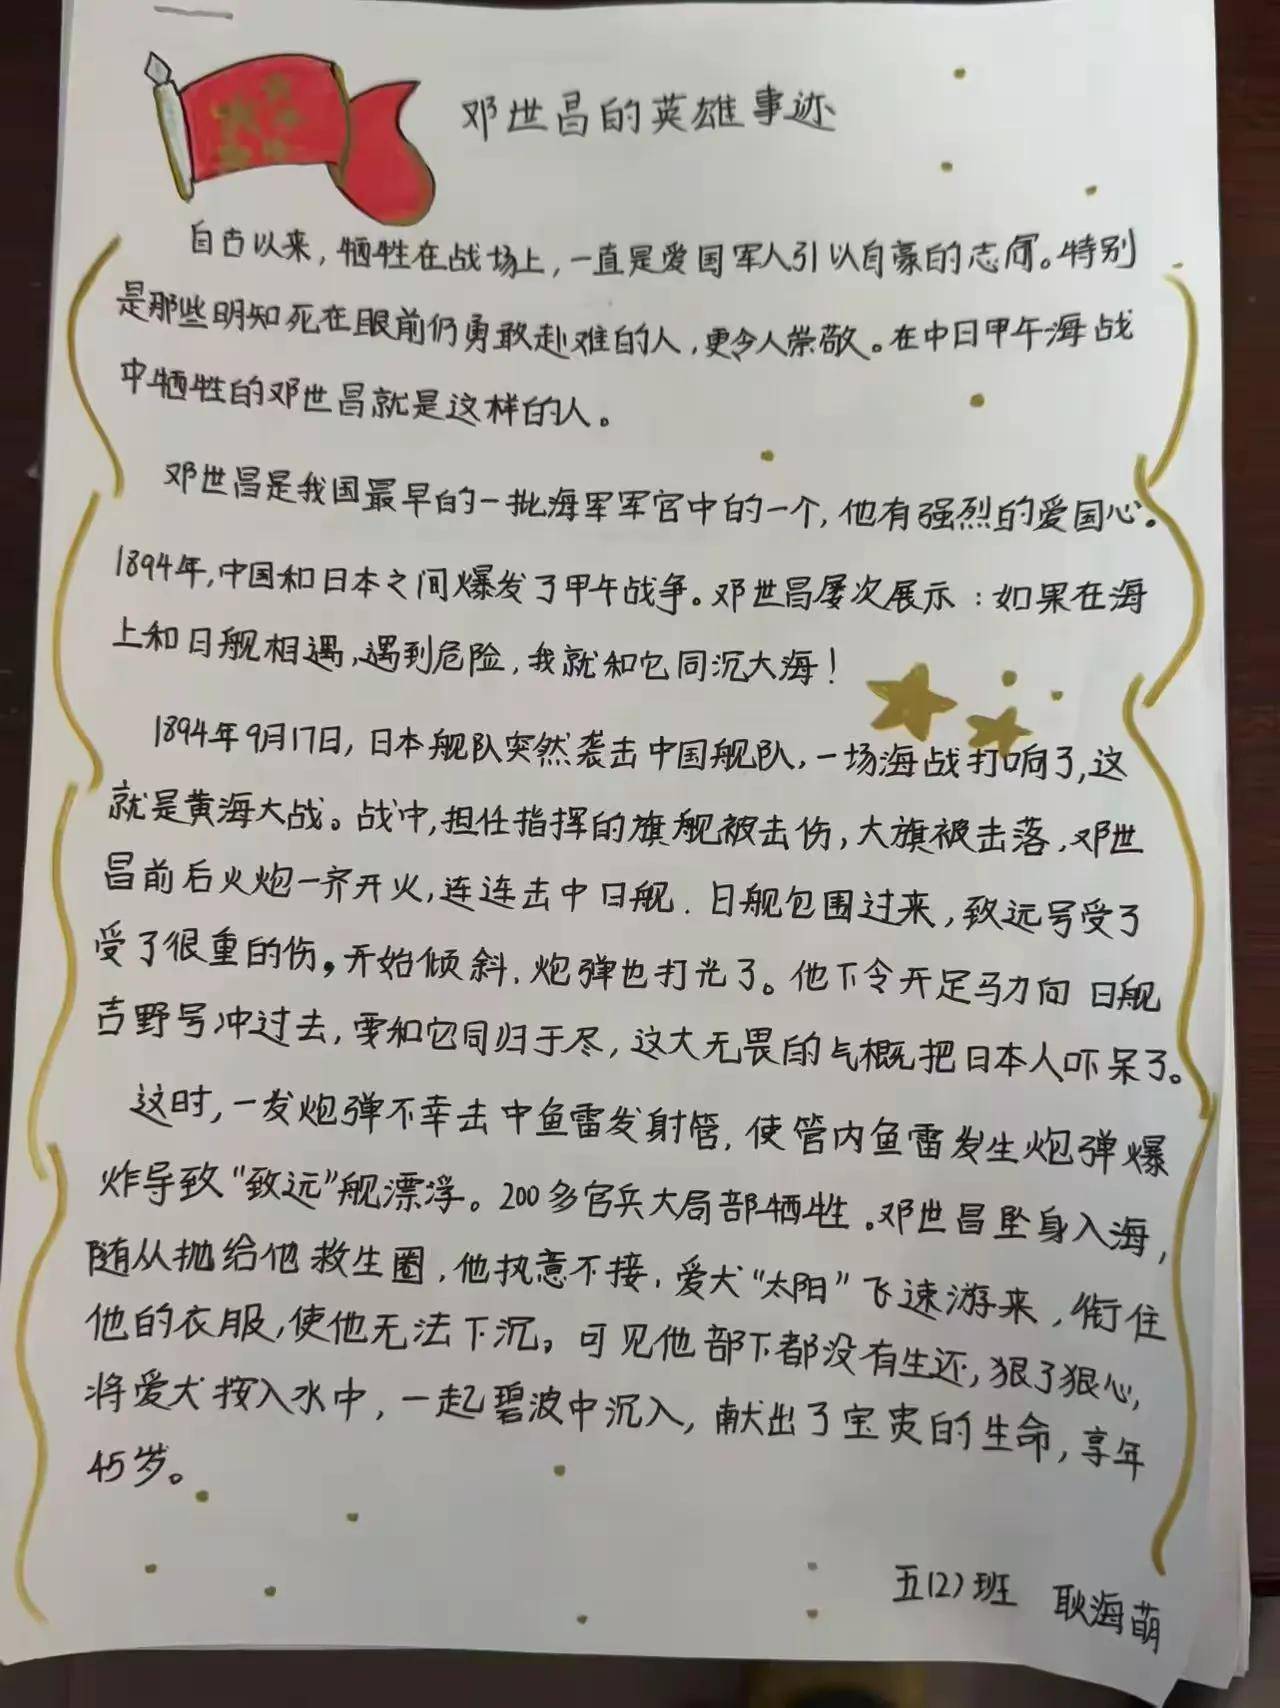 邓世昌的英雄事迹
自古以来，牺牲在战场上，一直是爱国军人引以自豪的志向。特别
是那些明知死在眼前仍勇敢赴难的人，更令人崇敬。在中日甲午海战
中牺牲的邓世昌就是这样的人。
邓世昌是我国最早的一批海军军官中的一个，他有强烈的爱国心。
1894年，中国和日本之间爆发了甲午战争。邓世昌屡次展示：如果在海
上和日舰相遇，遇到危险，我就和它同沉大海！
1894年9月17日，日本舰队突然袭击中国舰队，一场海战打响了，这
就是黄海大战。战中，担任指挥的旗舰被击伤，大旗被击落，邓世
昌前后火炮一齐开火，连连击中日舰．日舰包围过来，致远号受了
受了很重的伤，开始倾斜，炮弹也打光了。他下令开足马力向日舰
吉野号冲过去，要和它同归于尽，这大无畏的气概把日本人吓呆了。
这时，一发炮弹不幸击中鱼雷发射管，使管内鱼雷发生炮弹爆
炸导致“致远”舰漂浮。200多官兵大局部牺牲。邓世昌坠身入海，
随从抛给他救生圈，他执意不接，爱犬“太阳”飞速游来，衔住
他的衣服，使他无法下沉，可见他部下都没有生还，狠了狠心，
将爱犬按入水中，一起碧波中沉入，献出了宝贵的生命，享年
45岁。
五(2)班 耿海萌